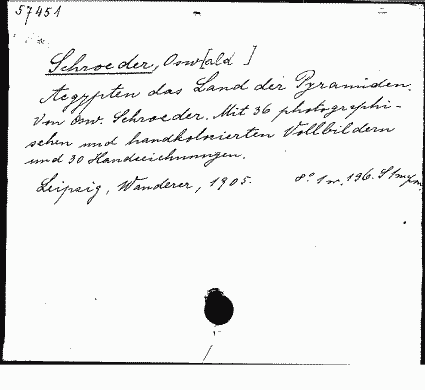 57451
Schroeder, Osw[ald ]
Aegypten das Land der Pyramiden.
Von Osw. Schroeder. Mit 36 photographi-
schen und handkolorierten Vollbildern
und 30 Handzeichnungen.
Leipzig, Wanderer, 1905. 8° 1 196. S